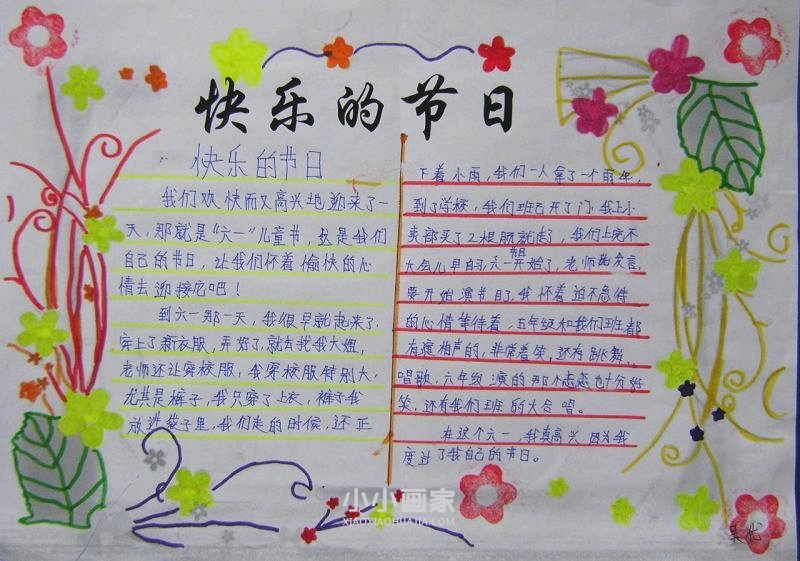 快乐的节日
快乐的节日
我们欢快而又高兴地迎来了一
天，那就是“六一”儿童节，这是我们
自己的节日，让我们怀着愉快的心
情去迎接它吧！
到六一那一天，我很早就起来了，
穿上了新衣服，弄好了，就去找我大姐，
老师还让穿校服，我穿校服特别大，
尤其是裤子，我只穿了上衣，裤子我
放进袋子里，我们走的时候，还正
下着小雨，我们一人拿了一个雨伞，
到了学校，我们班已开了门，我上小
卖部买了2根
就走了，我们上完不
大会儿早自习，六一节目开始了，老师
发言，
要开始演节目了，我怀着迫不急待
的心情等待着，五年级和我们班都
有演相声的，非常看笑，还有跳舞、
唱歌，六年级演的那个
也十分好
笑，还有我们班的大合唱。
在这个六一，我真高兴，因为我
度过了我自己的节日。
小小画家
XIAOXIAOHUAJIA.COM